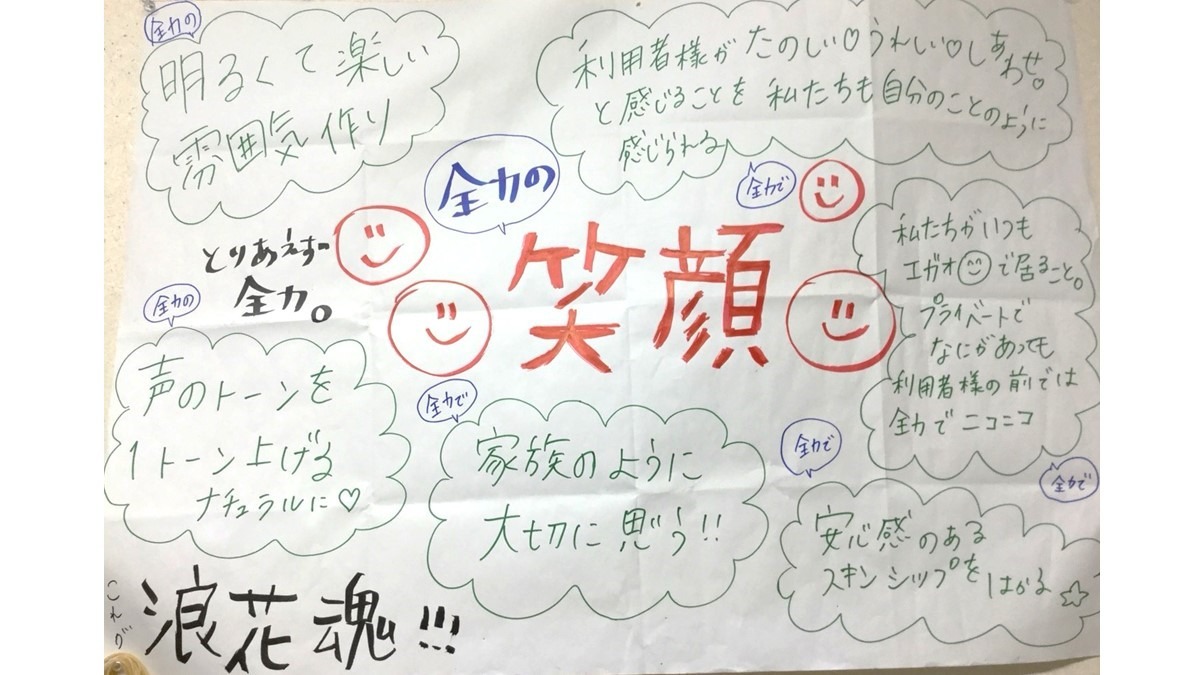 全力の
明るくて楽しい
雰囲気作り
利用者様が たのしい♡うれしい♡しあわせ。
と感じることを 私たちも自分のことのように
感じられる
全力の
笑顔
とりあえず
全力。
全力で
私たちがいつも
エガオで居ること。
プライベートで
なにがあっても
利用者様の前では
全力でニコニコ
全力の
声のトーンを
1トーン上げる
ナチュラルに♡
全力で
家族のように
大切に思う!!
全力で
全力で
安心感のある
スキンシップをはかる☆
これが
浪花魂!!!